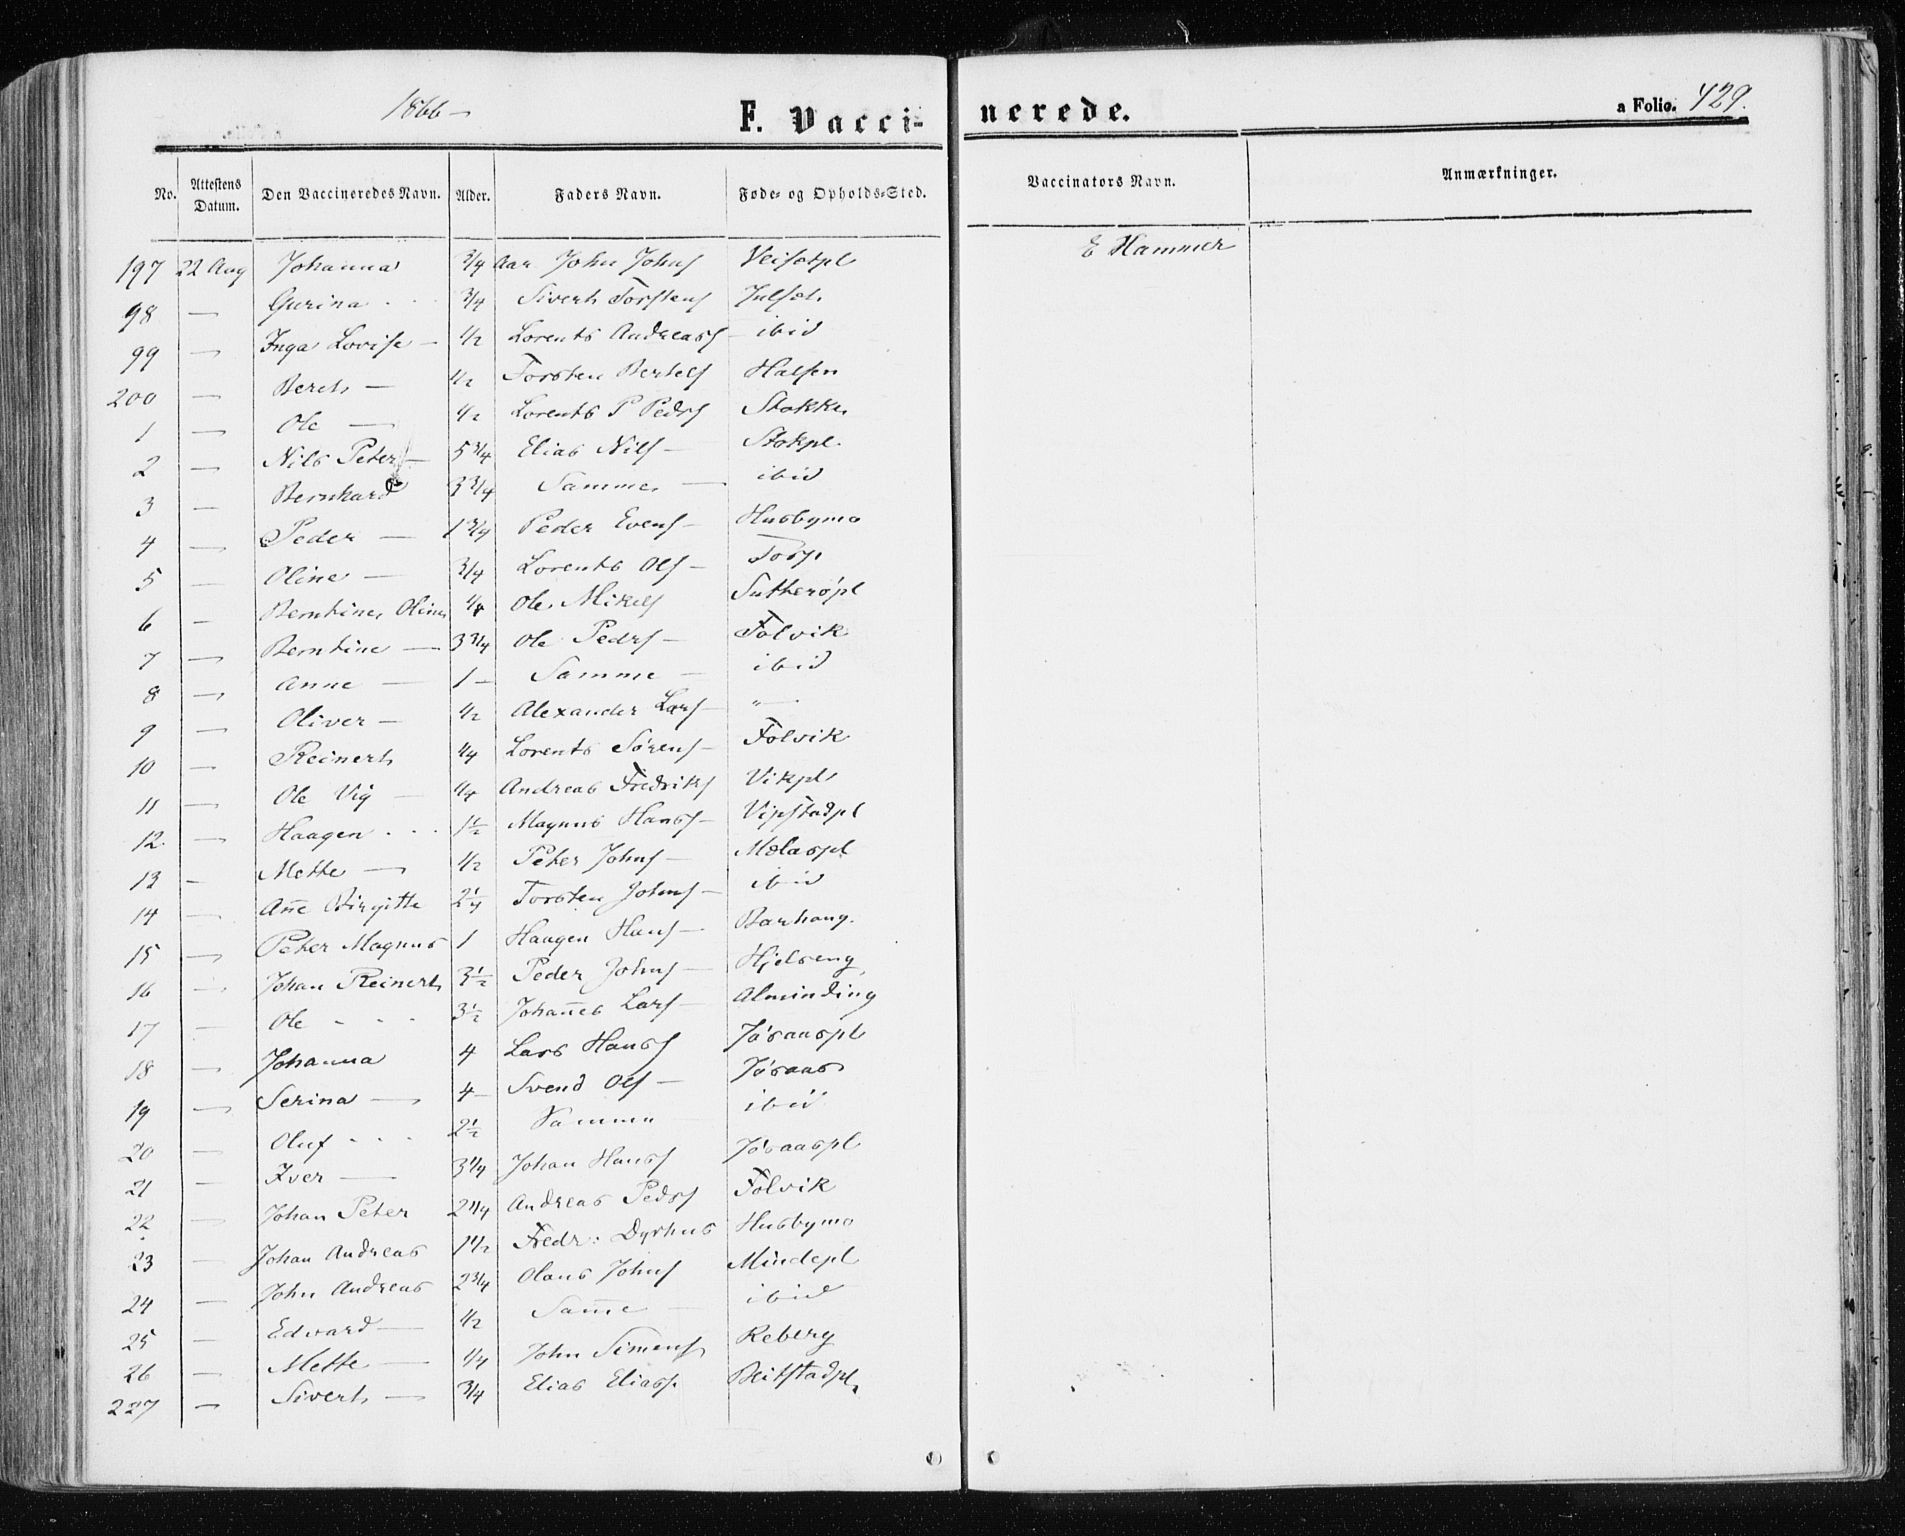 1866 –
F. Vacci-
nerede.
a Folio. 429.
No. Attestens Datum. Den Vaccineredes Navn. Alder. Faders Navn. Føde- og Opholds-Sted. Vaccinators Navn. Anmærkninger.
197 22 Aug Johanna 3/4 Aar John Johns Veisetpl E Hammer
98 — Gurina 3/4 Sivert Torstens Julset
99 — Inga Lovise – 1/2 Lorents Andreass – ibid
200 — Beret — 1/2 Torsten Bertels Halsen
1 — Ole — 1/2 Lorents P Peders Stokke
2 — Nils Peter – 5 3/4 Elias Nils – Stokpl.
3 — Bernhard 3 3/4 Samme — ibid
4 — Peder — 1 3/4 Peder Evens – Husbymo
5 — Oline — 3/4 Lorents Ols – Torp
6 — Berntine Oline 1/4 Ole Mikels
7 — Berntine — 3 3/4 Ole Peders – Folvik
8 — Anne — 1 – Samme – ibid
9 — Oliver – 1/2 Alexander Lars – „ —
10 — Reinert 1/4 Lorents Sørens – Folvik
11 — Ole Vig — 1/4 Andreas Fredriks Vikpl
12. — Haagen 1 1/2 Magnus Hans –
13 – Mette — 1/2 Peter Johns – Mælaspl
14 — Ane Birgitte 2 1/4 Torsten Johns – ibid
15 — Peter Magnus 1 Haagen Hans – Barhaug.
16 — Johan Reinert 3 1/2 Peder Johns – Hjelseng
17 — Ole 3 1/2 Johanes Lars – Alminding
18 — Johanna 4 Lars Hans Jøsaaspl
19 — Serina — 4 – Svend Ols – Jøsaas
20 — Oluf 2 1/2 Samme ibid
21 — Iver — 3 1/4 Johan Hans Jøsaaspl
22 — Johan Peter 2 1/4 Andreas Peders Folvik
23 — Johan Andreas 1 1/2 Fredr: Dyrhus Husbymo
24 — John Andreas 2 3/4 Olaus Johns Mindepl
25 — Edvard — 1/2 Same — ibid
26 — Mette — 1/4 John Simens Reberg
227 — Sivert — 3/4 Elias Eliass. Beitstadpl.